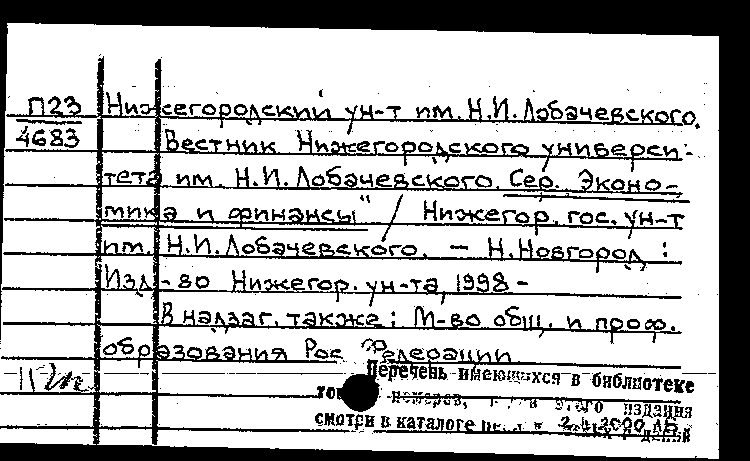 П23 Нижегородский ун-т им. Н.И. Лобачевского.
4683 Вестник Нижегородского универси-
тета им. Н.И. Лобачевского. Сер. Эконо-
мика и финансы" / Нижегор. гос. ун-т
им. Н.И. Лобачевского. — Н.Новгород :
Изд-во Нижегор. ун-та, 1998 -
В надзаг. также: М-во общ. и проф.
образования Рос. Федерации
Перечень имеющихся в библиотеке
номеров, этого издания
смотри в каталоге